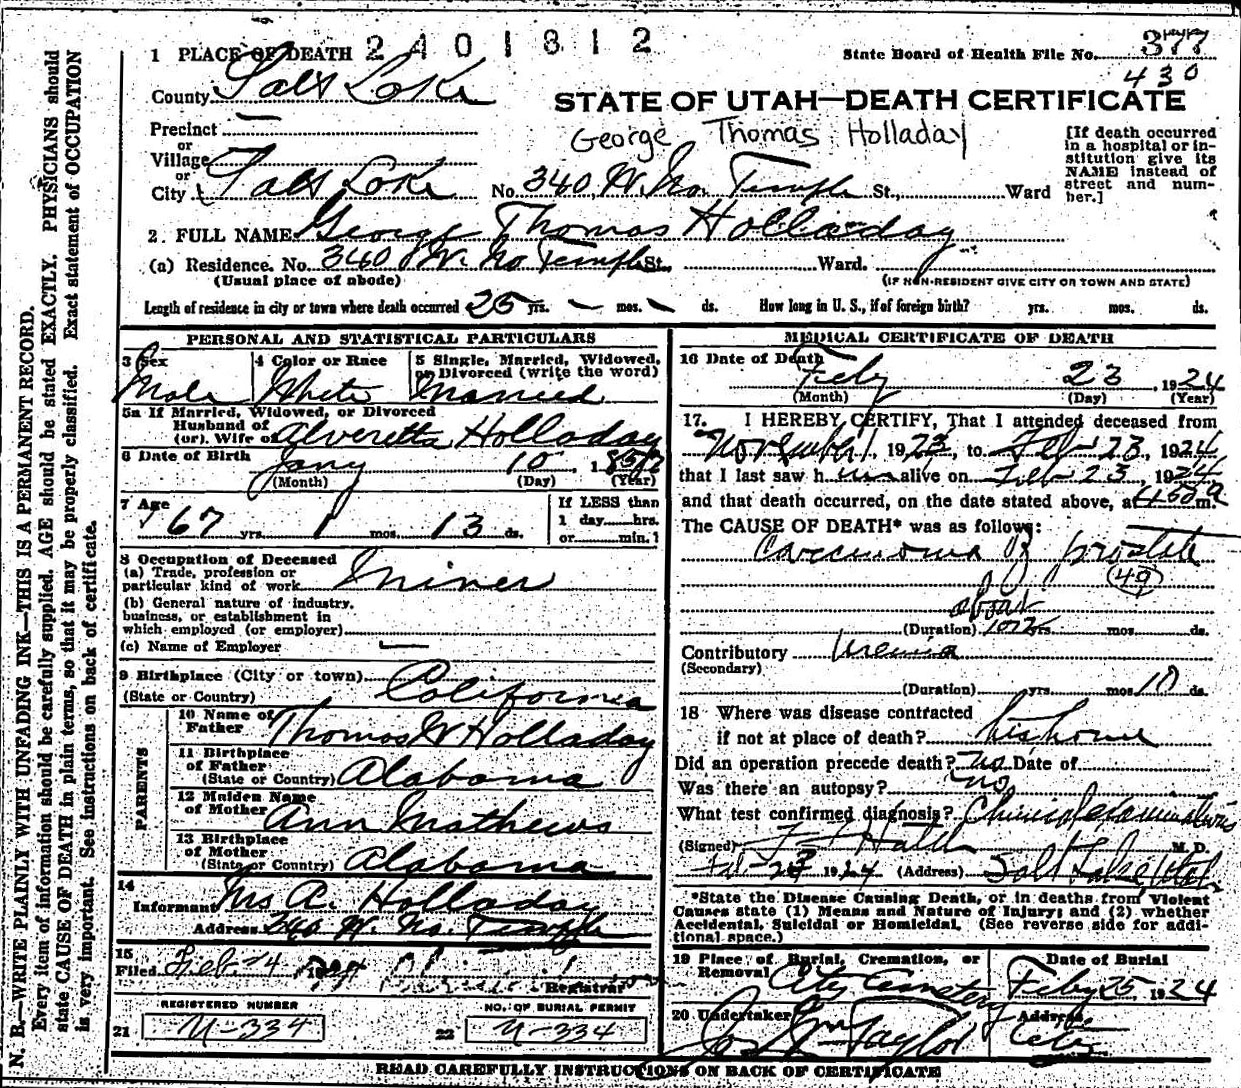 1 PLACE OF DEATH 2401812
State Board of Health File No. 377
430
County Salt Lake
STATE OF UTAH—DEATH CERTIFICATE
George Thomas Holladay
Precinct
or
Village
or
City Salt Lake No. 340 W. No. Temple St., Ward
[If death occurred in a hospital or institution give its NAME instead of street and number.]
2. FULL NAME George Thomas Holladay
(a) Residence. No. 340 W. No Temple St. Ward.
(Usual place of abode) (IF NON-RESIDENT GIVE CITY OR TOWN AND STATE)
Length of residence in city or town where death occurred 25 yrs. — mos. — ds. How long in U. S., if of foreign birth? yrs. mos. ds.
PERSONAL AND STATISTICAL PARTICULARS
3 Sex 4 Color or Race 5 Single, Married, Widowed, or Divorced (write the word)
Male White Married
5a If Married, Widowed, or Divorced
Husband of
(or) Wife of Alveretta Holladay
6 Date of Birth Jany 10, 1857
(Month) (Day) (Year)
7 Age 67 yrs. 1 mos. 13 ds.
If LESS than
1 day hrs.
or min. ?
8 Occupation of Deceased
(a) Trade, profession or
particular kind of work Miner
(b) General nature of industry,
business, or establishment in
which employed (or employer)
(c) Name of Employer —
9 Birthplace (City or town)
(State or Country) California
PARENTS
10 Name of
Father Thomas W Holladay
11 Birthplace
of Father
(State or Country) Alabama
12 Maiden Name
of Mother Ann Mathews
13 Birthplace
of Mother
(State or Country) Alabama
14
Informant Mrs A. Holladay
Address 340 W. No. Temple
15
Filed Feb. 24 1924
Registrar
REGISTERED NUMBER NO. OF BURIAL PERMIT
21 N-334 22 N-334
MEDICAL CERTIFICATE OF DEATH
16 Date of Death
Feby 23, 1924
(Month) (Day) (Year)
17. I HEREBY CERTIFY, That I attended deceased from
November 1, 1923, to Feb 23, 1924
that I last saw him alive on Feb 23, 1924
and that death occurred, on the date stated above, at m.
The CAUSE OF DEATH* was as follows:
Carcinoma of prostate
(49)
about
(Duration) yrs. mos. ds.
Contributory Uremia
(Secondary)
(Duration) yrs. mos. 10 ds.
18 Where was disease contracted
if not at place of death? his home
Did an operation precede death? no Date of
Was there an autopsy? no
What test confirmed diagnosis?
(Signed) M. D.
Feb. 23 1924 (Address) Salt Lake Utah
*State the Disease Causing Death, or in deaths from Violent
Causes state (1) Means and Nature of Injury; and (2) whether
Accidental, Suicidal or Homicidal. (See reverse side for addi-
tional space.)
19 Place of Burial, Cremation, or Removal Date of Burial
City Cemetery Feby 25, 1924
20 Undertaker Address
Taylor City
READ CAREFULLY INSTRUCTIONS ON BACK OF CERTIFICATE
N. B.—WRITE PLAINLY WITH UNFADING INK—THIS IS A PERMANENT RECORD.
Every item of information should be carefully supplied. AGE should be stated EXACTLY. PHYSICIANS should
state CAUSE OF DEATH in plain terms, so that it may be properly classified. Exact statement of OCCUPATION
is very important. See instructions on back of certificate.